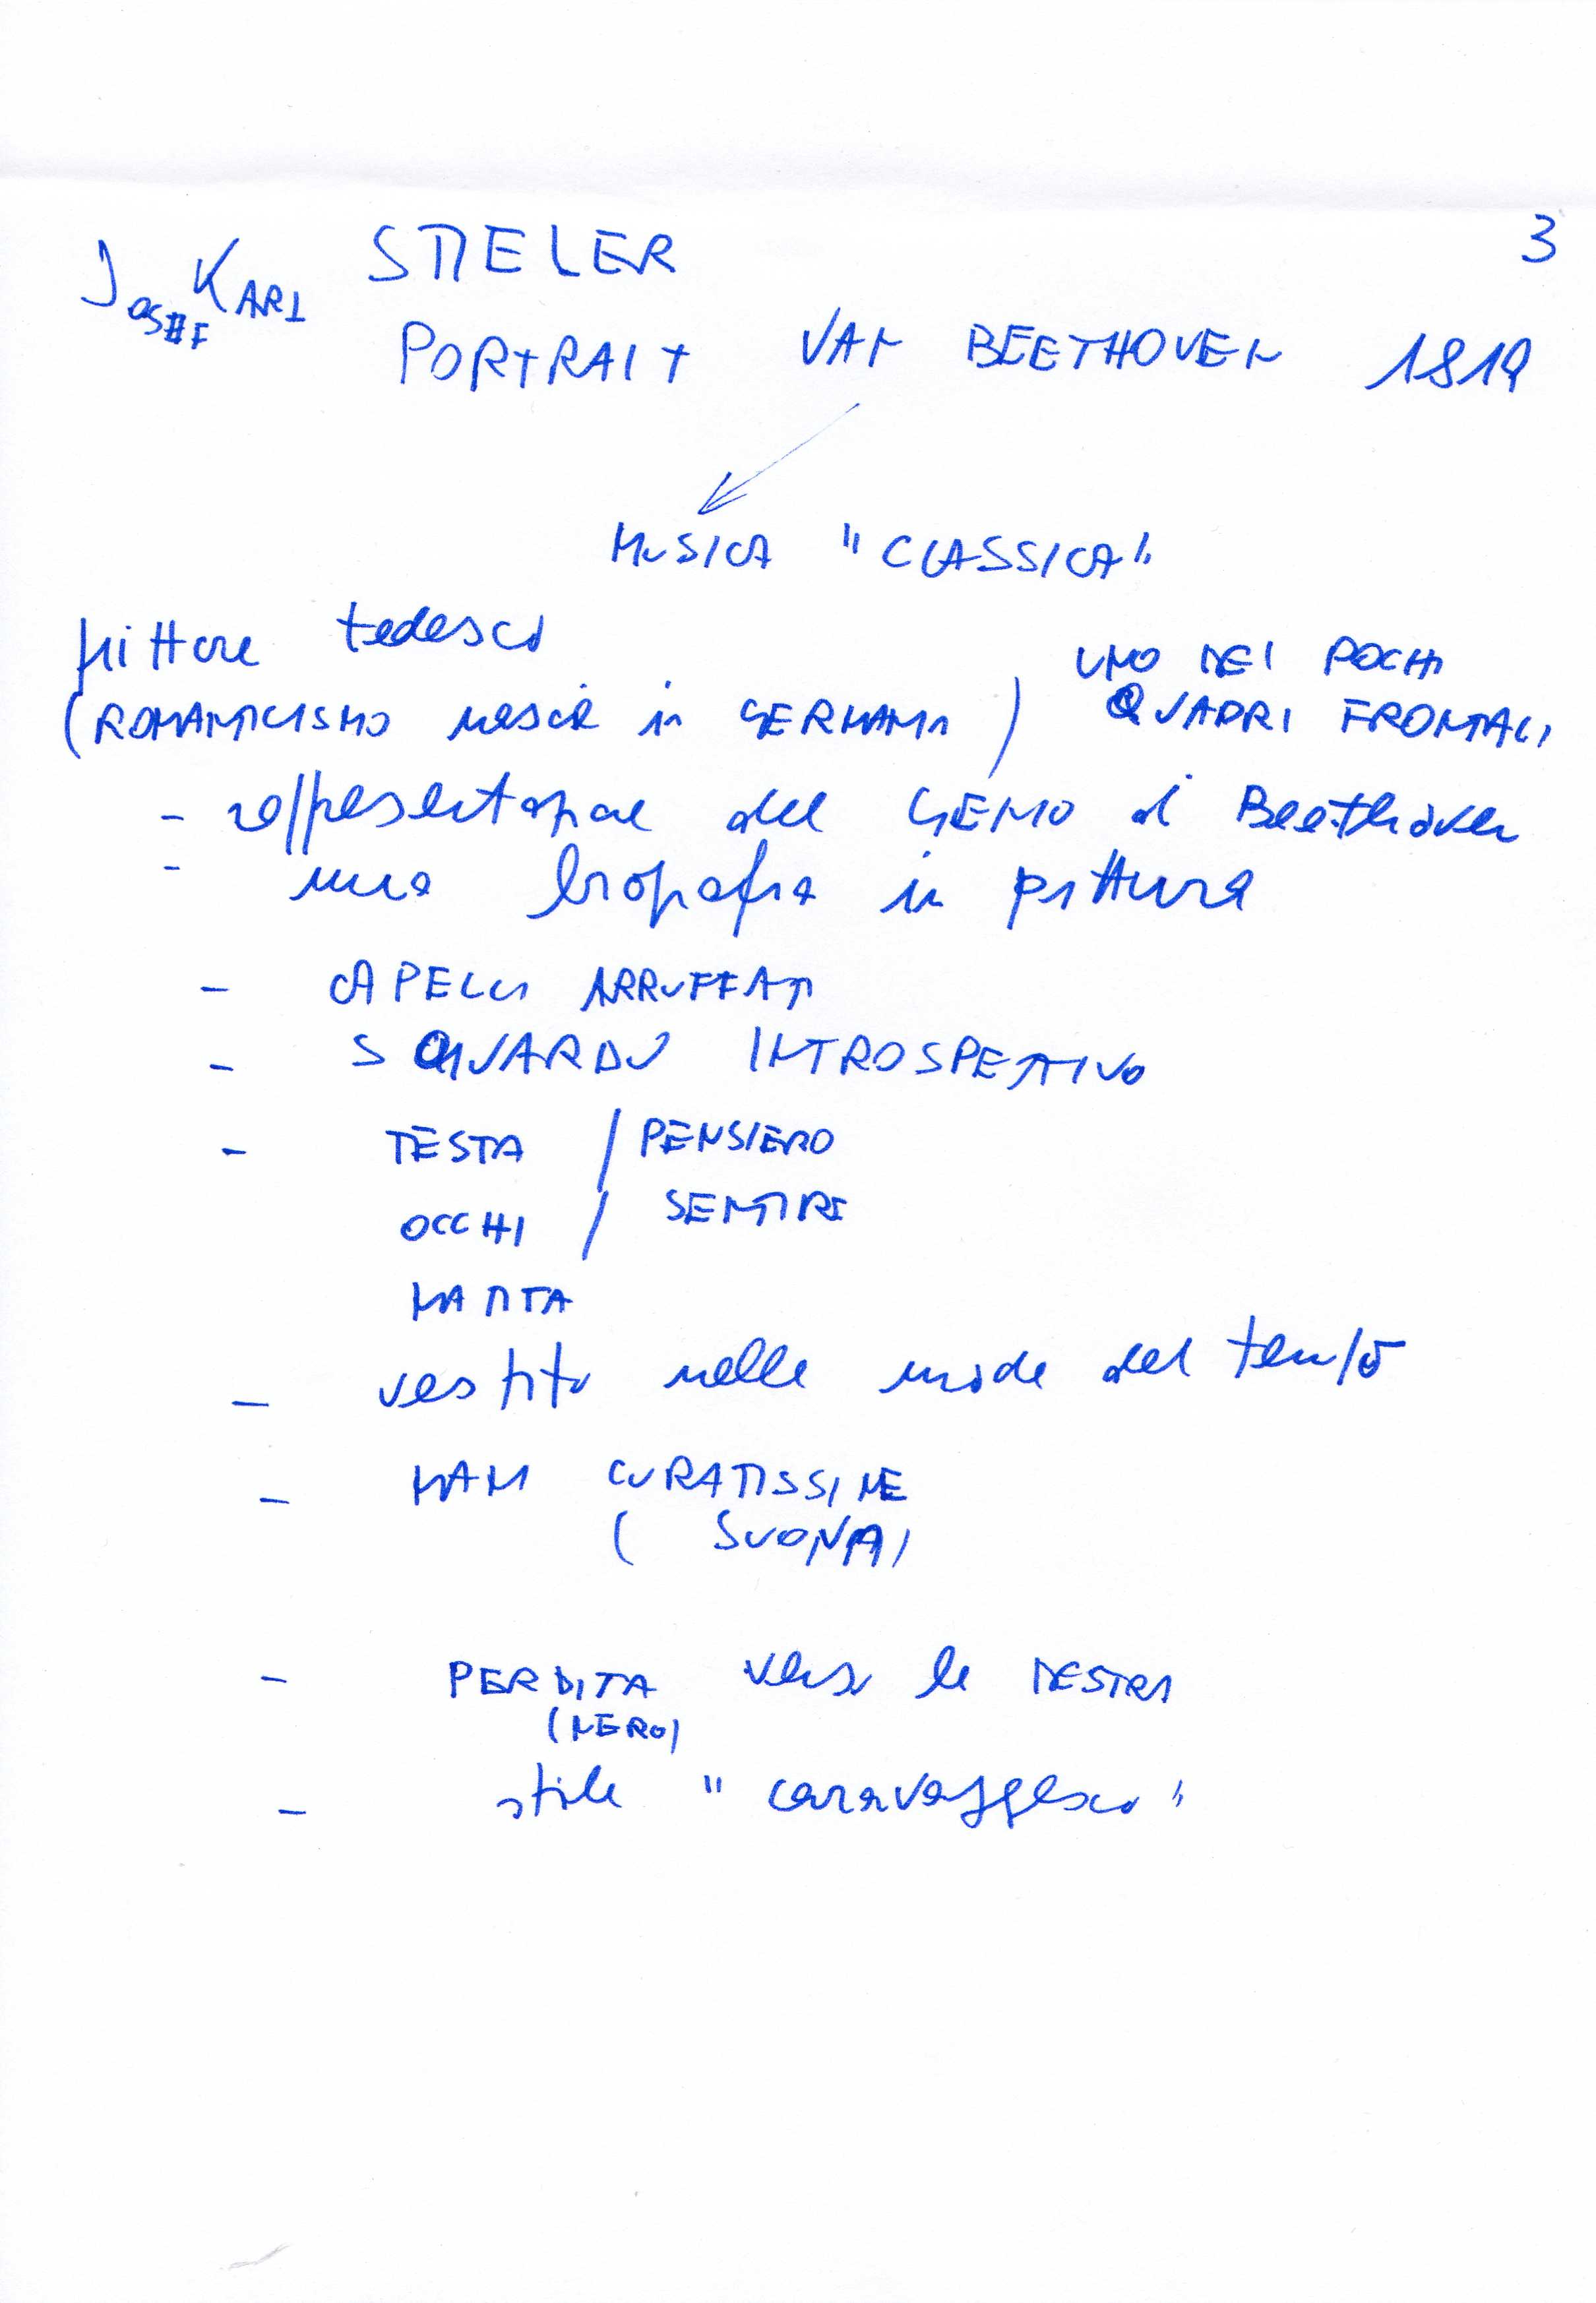 3
JOSEF KARL STIELER
PORTRAIT VAN BEETHOVEN 1819
MUSICA "CLASSICA"
pittore tedesco
(ROMANTICISMO nasce in GERMANIA)
UNO DEI POCHI
QUADRI FRONTALI
- rappresentazione del GENIO di Beethoven
- una biografia in pittura
- CAPELLI ARRUFFATI
- SGUARDO INTROSPETTIVO
- TESTA / PENSIERO
OCCHI / SENTIRE
MATITA
- vestito nella moda del tempo
- MANI CURATISSIME
(SUONA)
- PERDITA verso la DESTRA
(NERO)
- stile "caravaggesco"